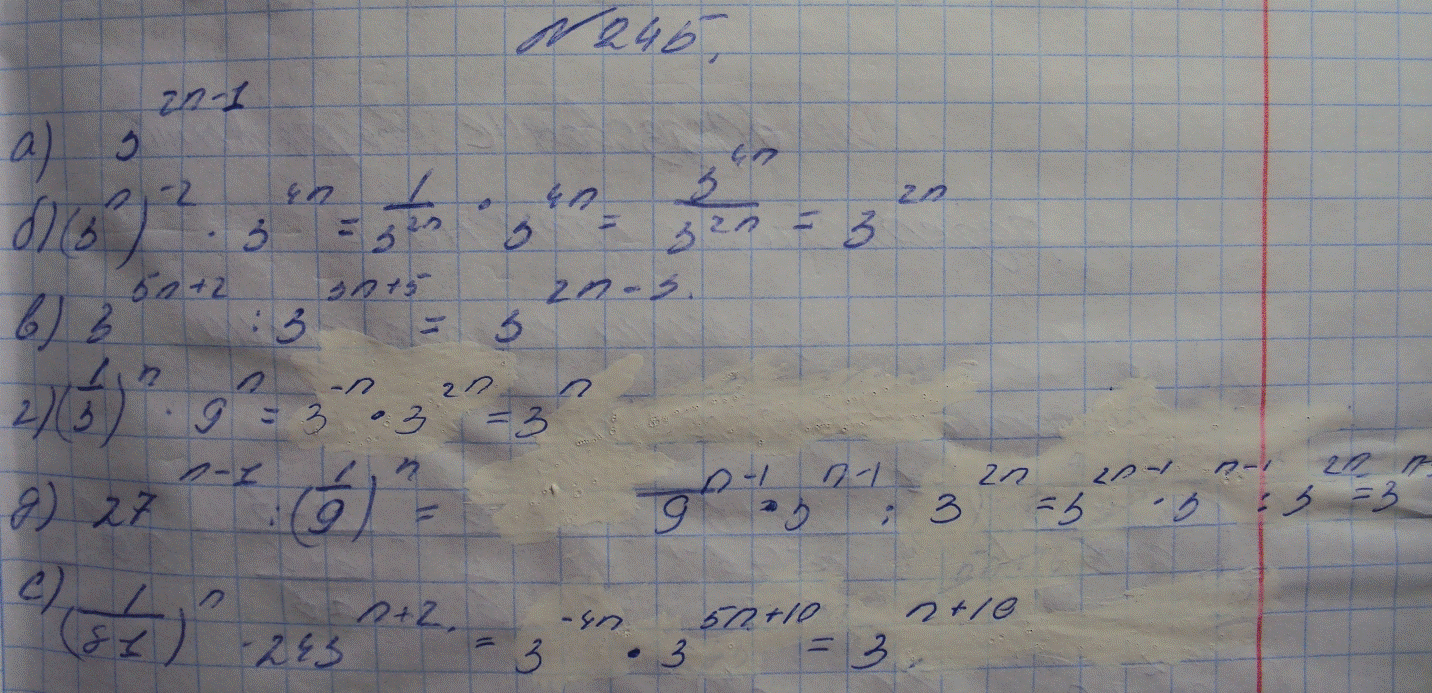 № 245.
а) 3^{2n-1}
б) (3^n)^{-2} · 3^{4n} = \frac{1}{3^{2n}} · 3^{4n} = \frac{3^{4n}}{3^{2n}} = 3^{2n}
в) 3^{5n+2} : 3^{3n+5} = 3^{2n-3}.
г) (\frac{1}{3})^n · 9^n = 3^{-n} · 3^{2n} = 3^n
д) 27^{n-1} : (\frac{1}{9})^n = 9^{n-1} · 3^{n-1} : 3^{2n} = 3^{2n-1} · 3^{n-1} : 3^{2n} = 3^{n-
е) (\frac{1}{81})^n · 243^{n+2} = 3^{-4n} · 3^{5n+10} = 3^{n+10}